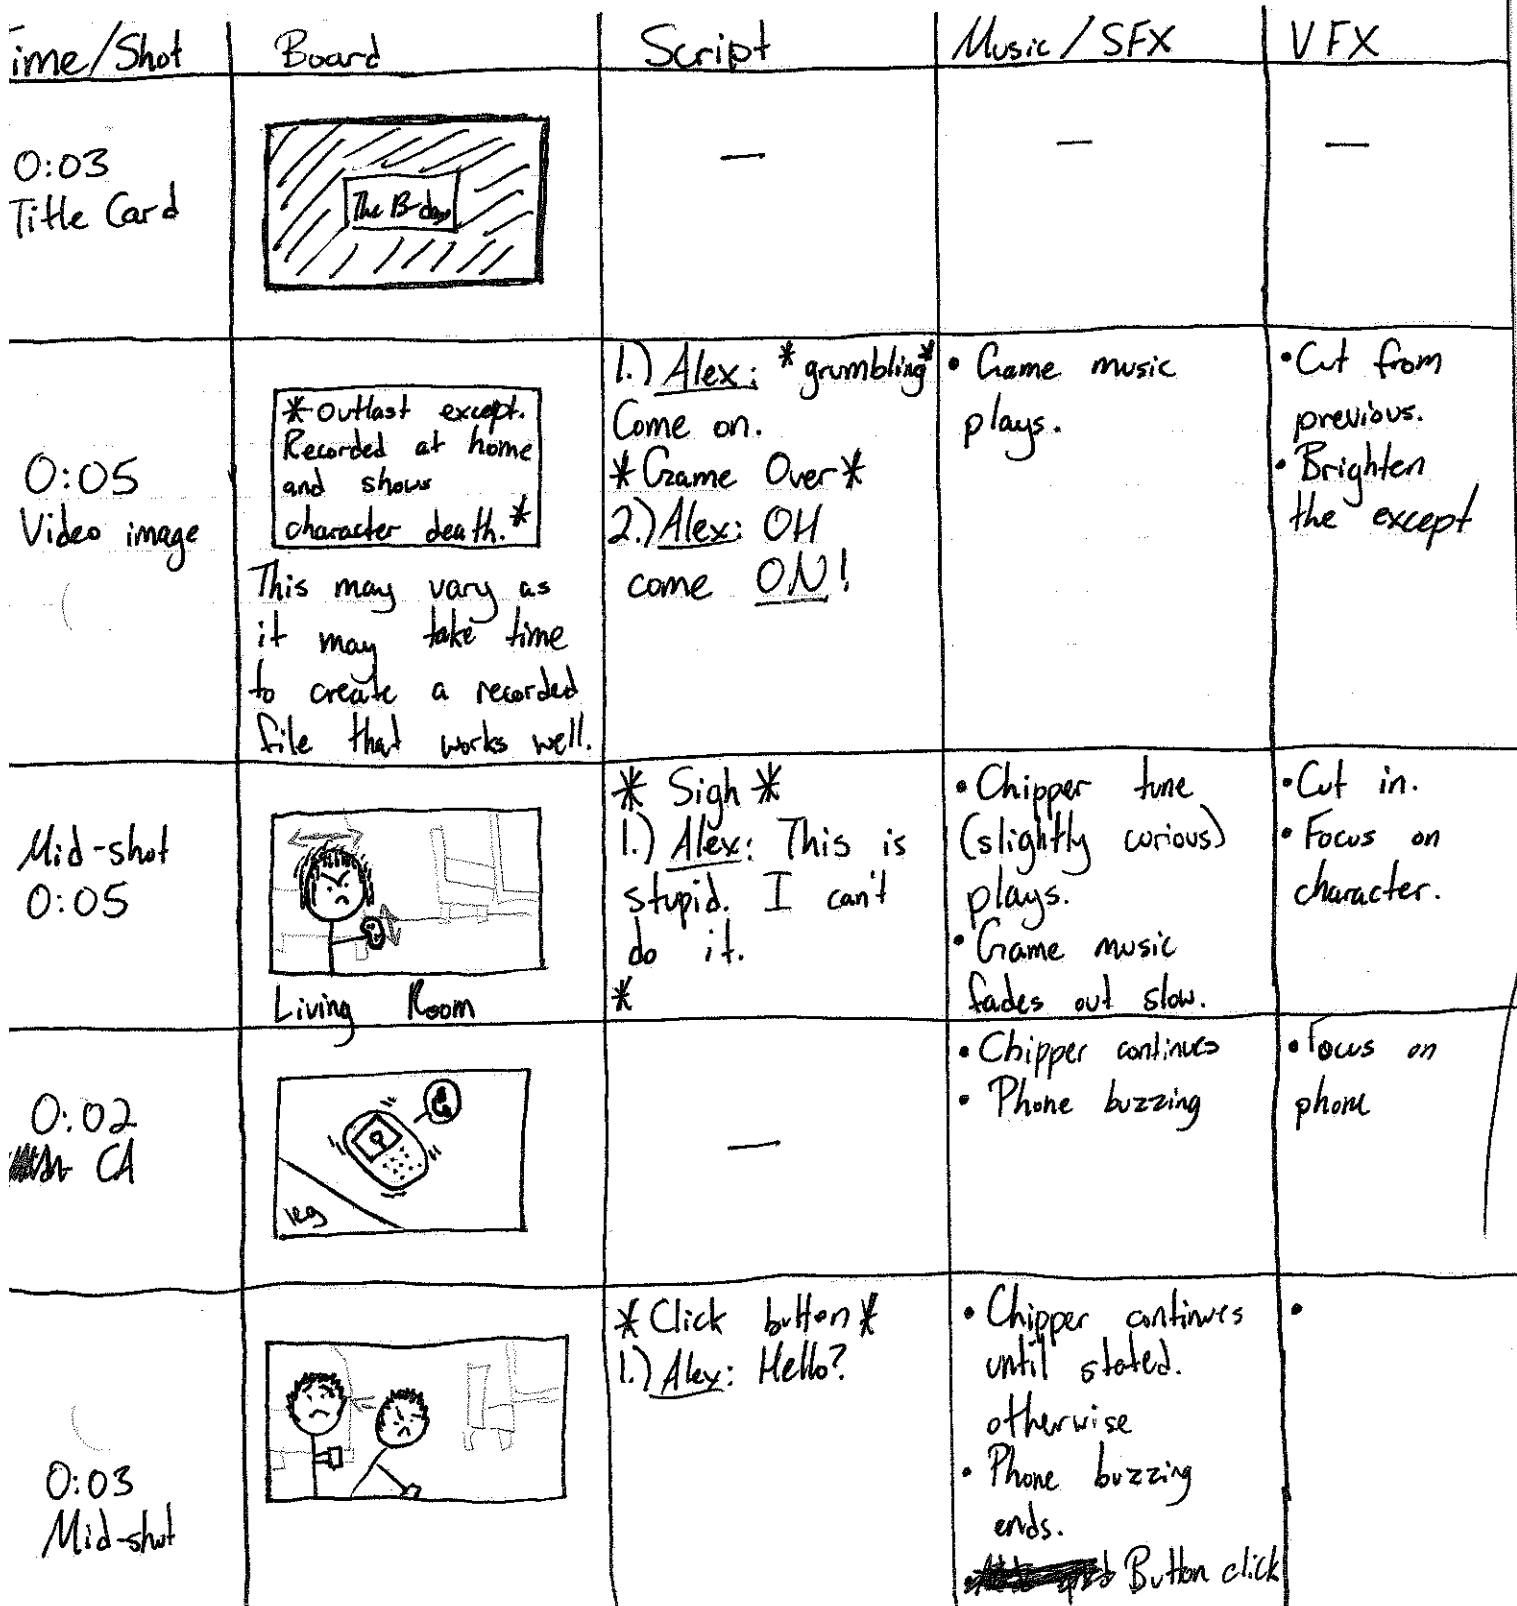 ime/Shot
Board
Script
Music / SFX
VFX
0:03
Title Card
The B-day
—
—
—
0:05
Video image
*outlast except.
Recorded at home
and shows
character death.*
This may vary as
it may take time
to create a recorded
file that works well.
1.) Alex: *grumbling*
Come on.
*Game Over*
2.) Alex: OH
come ON!
• Game music
plays.
• Cut from
previous.
• Brighten
the except
Mid-shot
0:05
Living Room
* Sigh *
1.) Alex: This is
stupid. I can't
do it.
*
• Chipper tune
(slightly curious)
plays.
• Game music
fades out slow.
• Cut in.
• Focus on
character.
0:02
CA
leg
—
• Chipper continues
• Phone buzzing
• Focus on
phone
0:03
Mid-shot
*Click button*
1.) Alex: Hello?
• Chipper continues
until stated.
otherwise
• Phone buzzing
ends.
• Button click
•